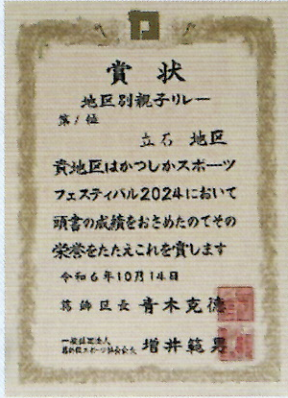 賞状
地区別親子リレー
第1位
立石 地区
貴地区はかつしかスポーツ
フェスティバル2024において
頭書の成績をおさめたのでその
栄誉をたたえこれを賞します
令和6年10月14日
葛飾区長 青木克德
一般社団法人
葛飾区スポーツ協会会長 増井範男